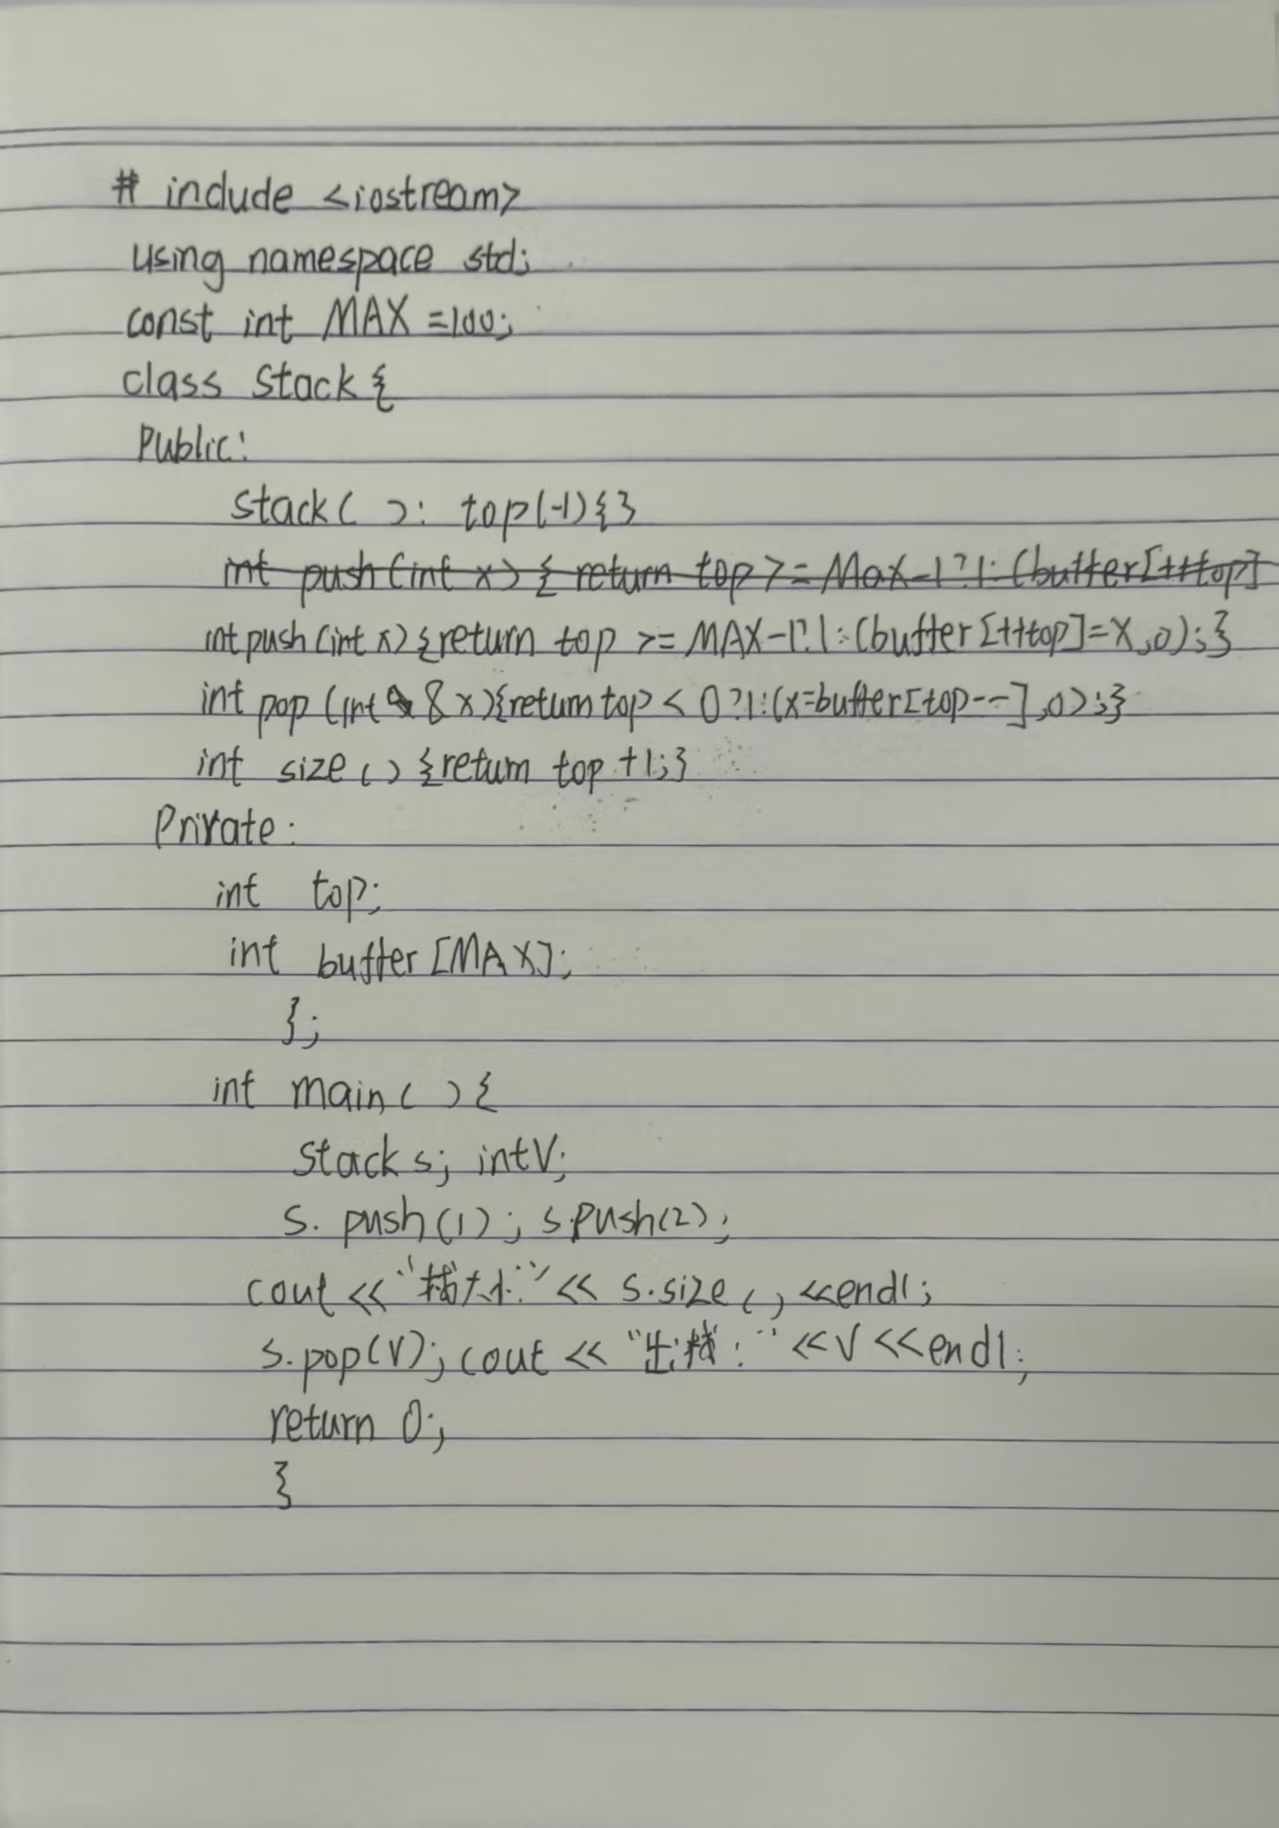 # include <iostream>
using namespace std;
const int MAX =100;
class Stack {
Public:
Stack( ): top(-1){}
int push(int x) { return top >= Max-1?1:(buffer[++top]
int push(int x) {return top >= MAX-1?1:(buffer[++top]=x,0);}
int pop (int & x){return top < 0?1:(x=buffer[top--],0);}
int size() {return top +1;}
Private:
int top;
int buffer[MAX];
};
int main( ){
Stack s; int V;
s. push(1); s.push(2);
cout <<"栈大小:"<< s.size() <<endl;
s.pop(V); cout << "出栈:" <<V <<endl;
return 0;
}